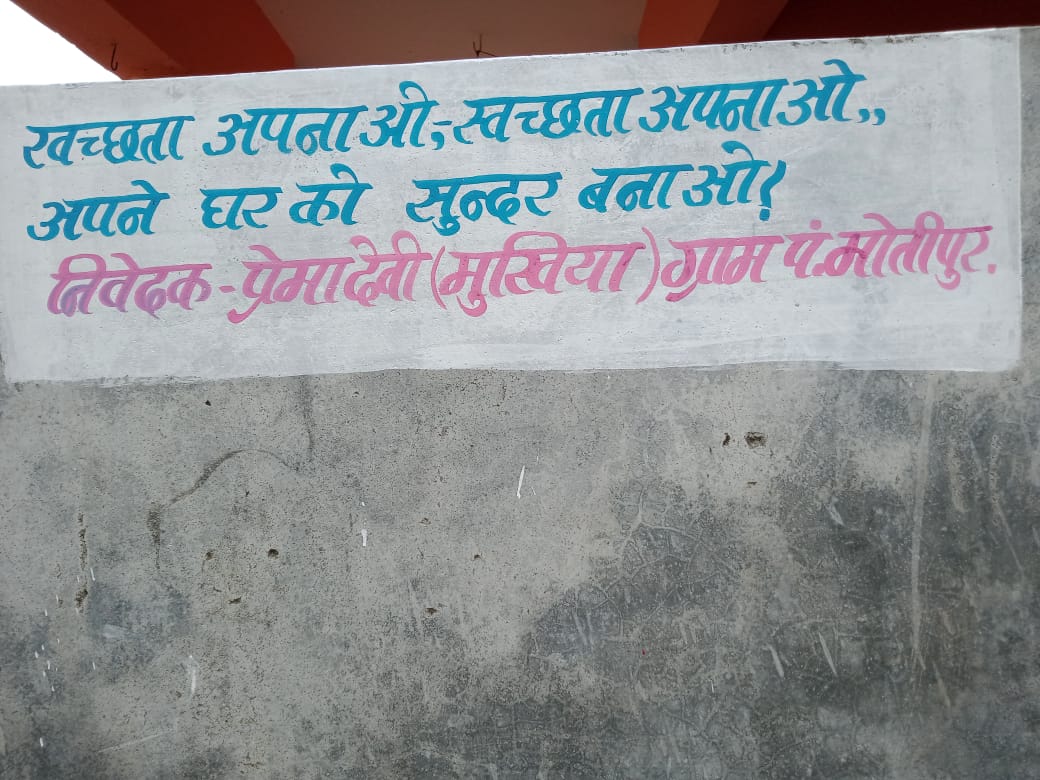 स्वच्छता अपनाओ,-स्वच्छता अपनाओ,,
अपने घर को सुन्दर बनाओ!
निवेदक-प्रेमादेवी(मुखिया)ग्राम पं.मोतीपुर.